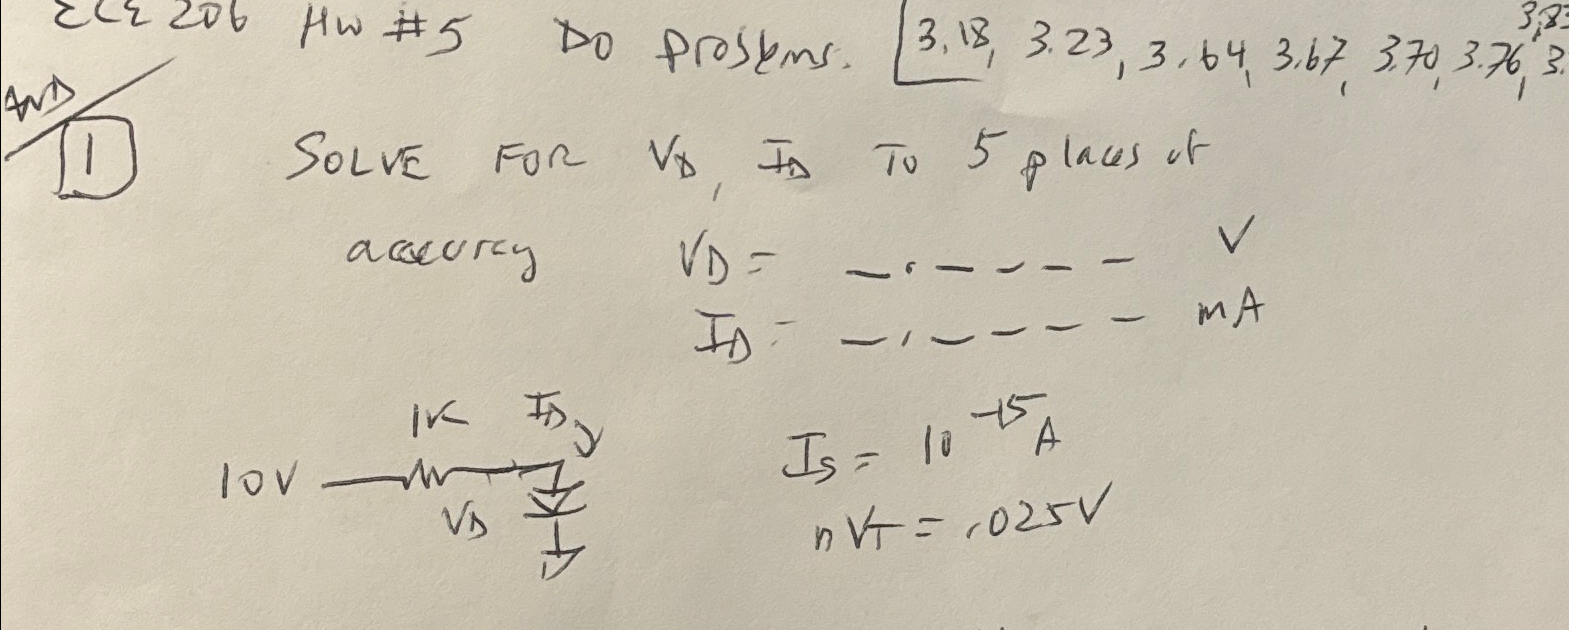 ECE 206 HW #5 Do problems. 3.18, 3.23, 3.64, 3.67, 3.70, 3.76, 3.83
AND
1 SOLVE FOR VD, ID TO 5 places of
accuracy VD = _._ _ _ _ V
ID = _._ _ _ _ mA
1K ID
10V VD
IS = 10^-15 A
nVT = .025V